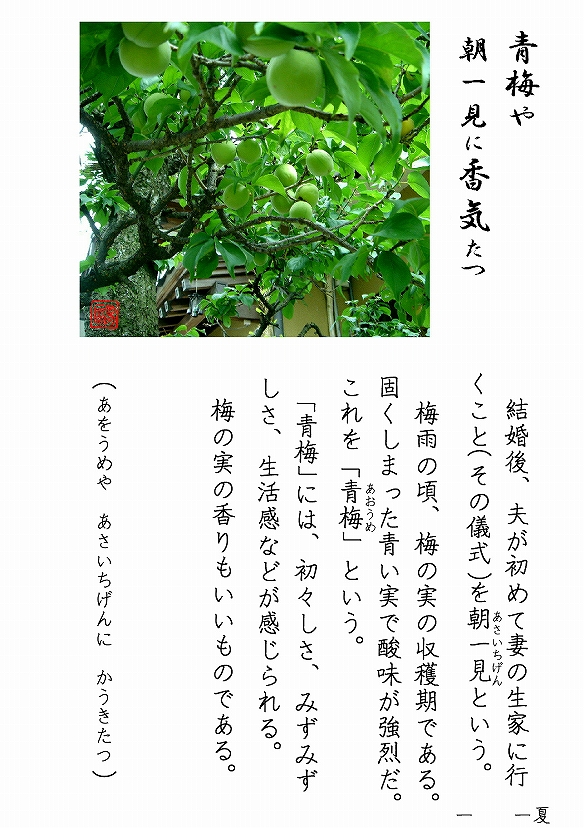 青梅や
朝一見に香気たつ
結婚後、夫が初めて妻の生家に行
くこと(その儀式)を朝一見という。
あさいちげん
梅雨の頃、梅の実の収穫期である。
固くしまった青い実で酸味が強烈だ。
これを「青梅」という。
あおうめ
「青梅」には、初々しさ、みずみず
しさ、生活感などが感じられる。
梅の実の香りもいいものである。
(あをうめや あさいちげんに かうきたつ)
一 一夏